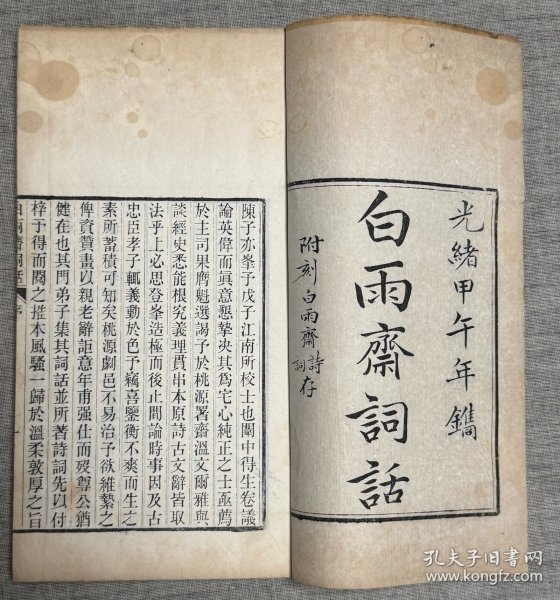 光緒甲午年鐫
白雨齋詞話
附刻白雨齋詩詞存
陳子亦峯予戊子江南所校士也闈中得生卷議
論英偉而眞意懇摯决其爲宅心純正之士亟薦
於主司果膺魁選謁予於桃源署齋溫文爾雅與
談經史悉能根究義理貫串本原詩古文辭皆取
法乎上必思登峯造極而後止間論時事因及古
忠臣孝子輒義動於色予竊喜鑒衡不爽而生之
素所蓄積可知矣桃源劇邑不易治予欲維縶之
俾資贊畫以親老辭詎意年甫强仕而歿尊公猶
健在也其門弟子集其詞話並所著詩詞先以付
梓于得而閱之摧本風騷一歸於溫柔敦厚之旨
白雨齋詞話 序 一
孔夫子旧书网
www.kongfz.com